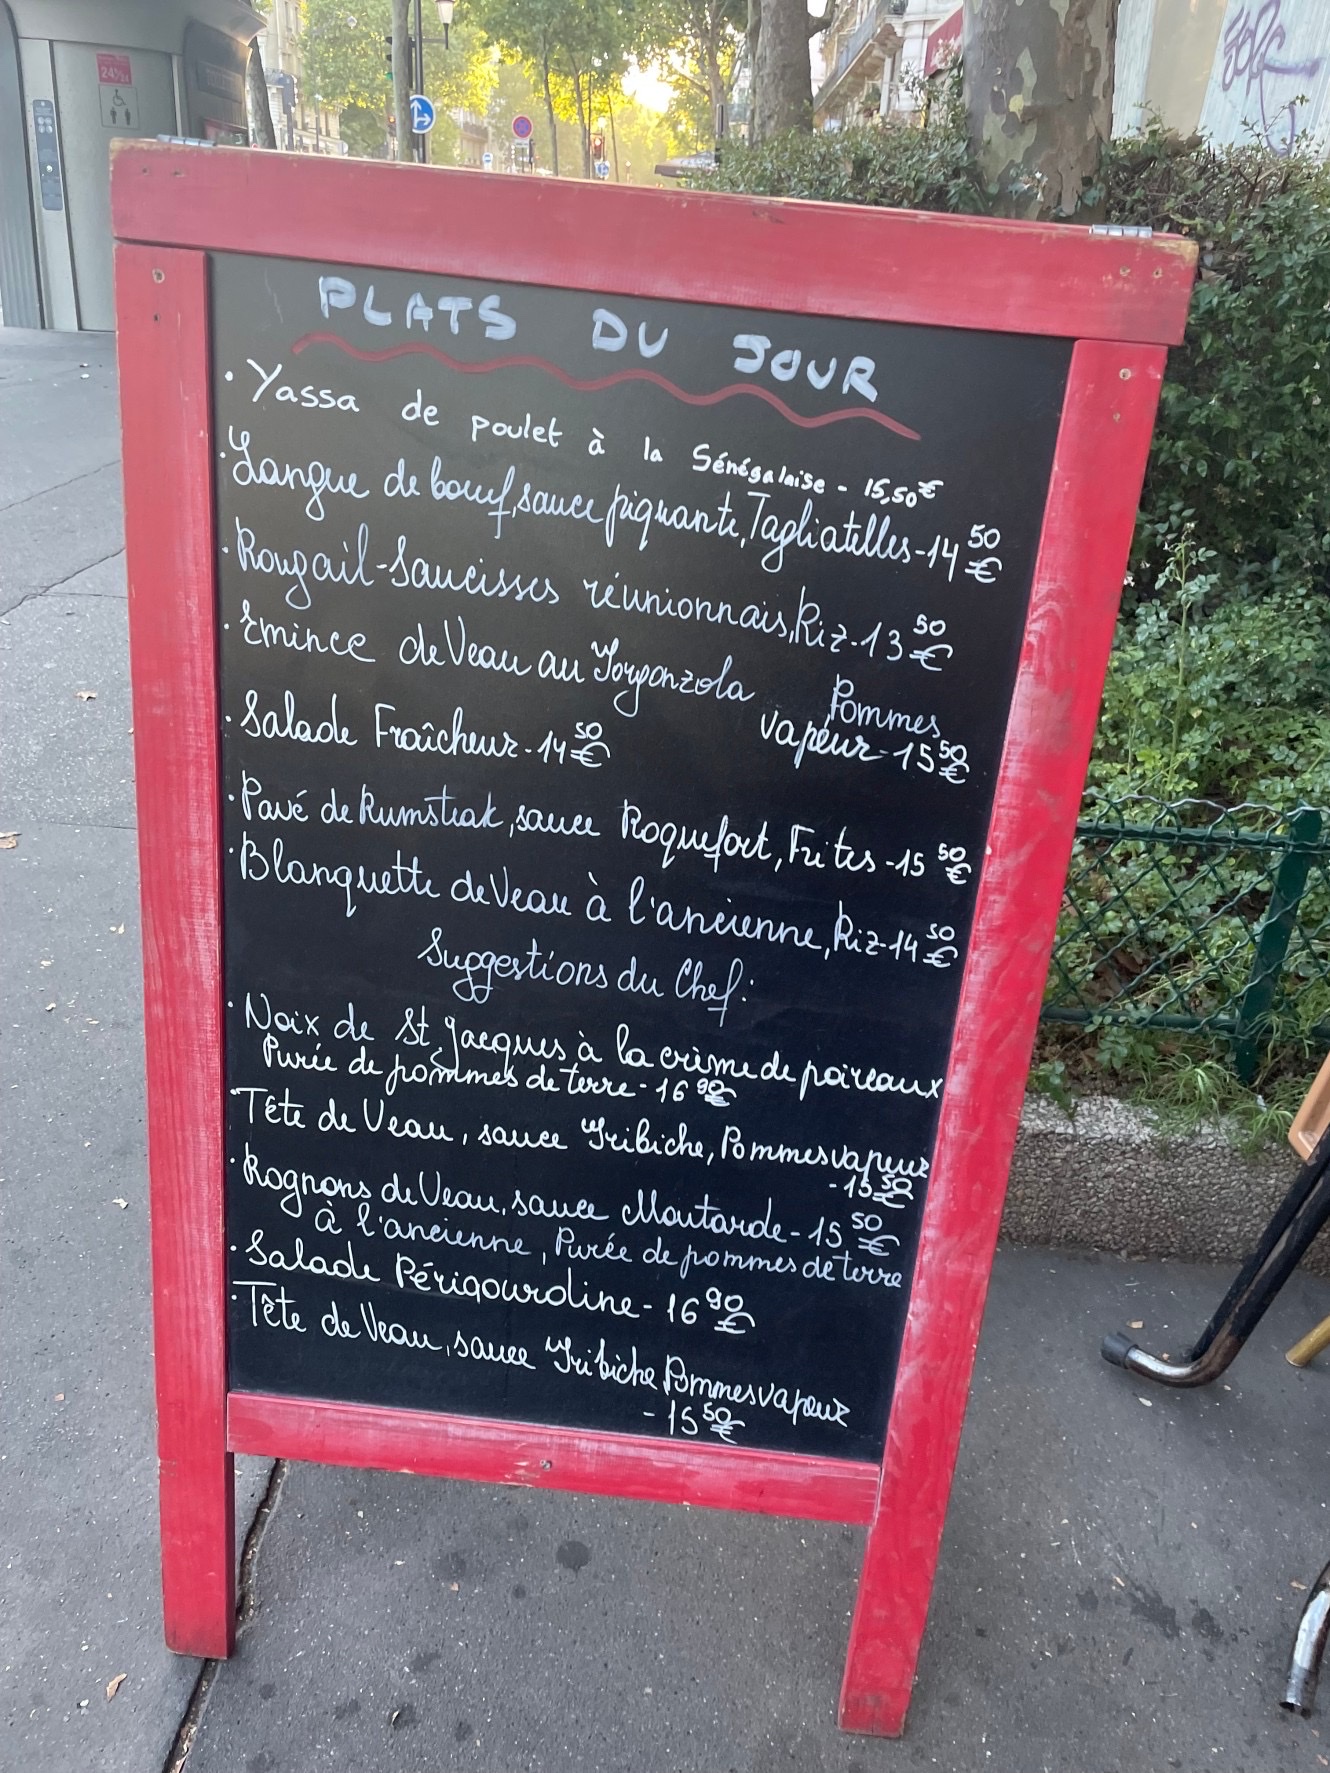 24h/24
PLATS DU JOUR
· Yassa de poulet à la Sénégalaise - 15,50€
· Langue de bœuf, sauce piquante, Tagliatelles - 14 50 €
· Rougail-Saucisses réunionnais, Riz - 13 50 €
· Emince de Veau au Gorgonzola Pommes
vapeur - 15 50 €
· Salade Fraîcheur - 14 50 €
· Pavé de Rumsteak, sauce Roquefort, Frites - 15 50 €
· Blanquette de Veau à l'ancienne, Riz - 14 50 €
Suggestions du Chef :
· Noix de St Jacques à la crème de poireaux
Purée de pommes de terre - 16 90 €
· Tête de Veau, sauce Gribiche, Pommes vapeur
- 15 50 €
· Rognons de Veau, sauce Moutarde - 15 50 €
à l'ancienne, Purée de pommes de terre
· Salade Périgourdine - 16 90 €
· Tête de Veau, sauce Gribiche Pommes vapeur
- 15 50 €